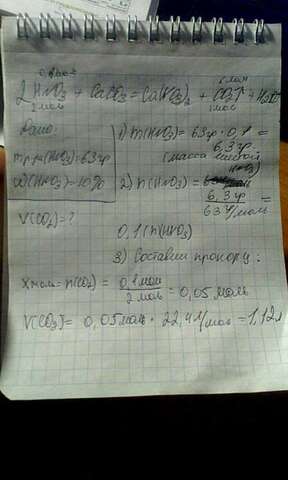 0,1моль х моль
2HNO3 + CaCO3 = Ca(NO3)2 + CO2↑ + H2O
2моль 1моль
Дано:
mр-ра(HNO3)=63гр
ω(HNO3)=10%
V(CO2)=?
1) m(HNO3)=63гр·0,1=
6,3гр
(масса чистой
HNO3)
2) n(HNO3)=
6,3гр
63г/моль
=
0,1(n(HNO3)
3) Составим пропорц:
Xмоль=n(CO2)= 0,1моль / 2моль = 0,05моль
V(CO2)= 0,05моль · 22,4л/моль = 1,12л